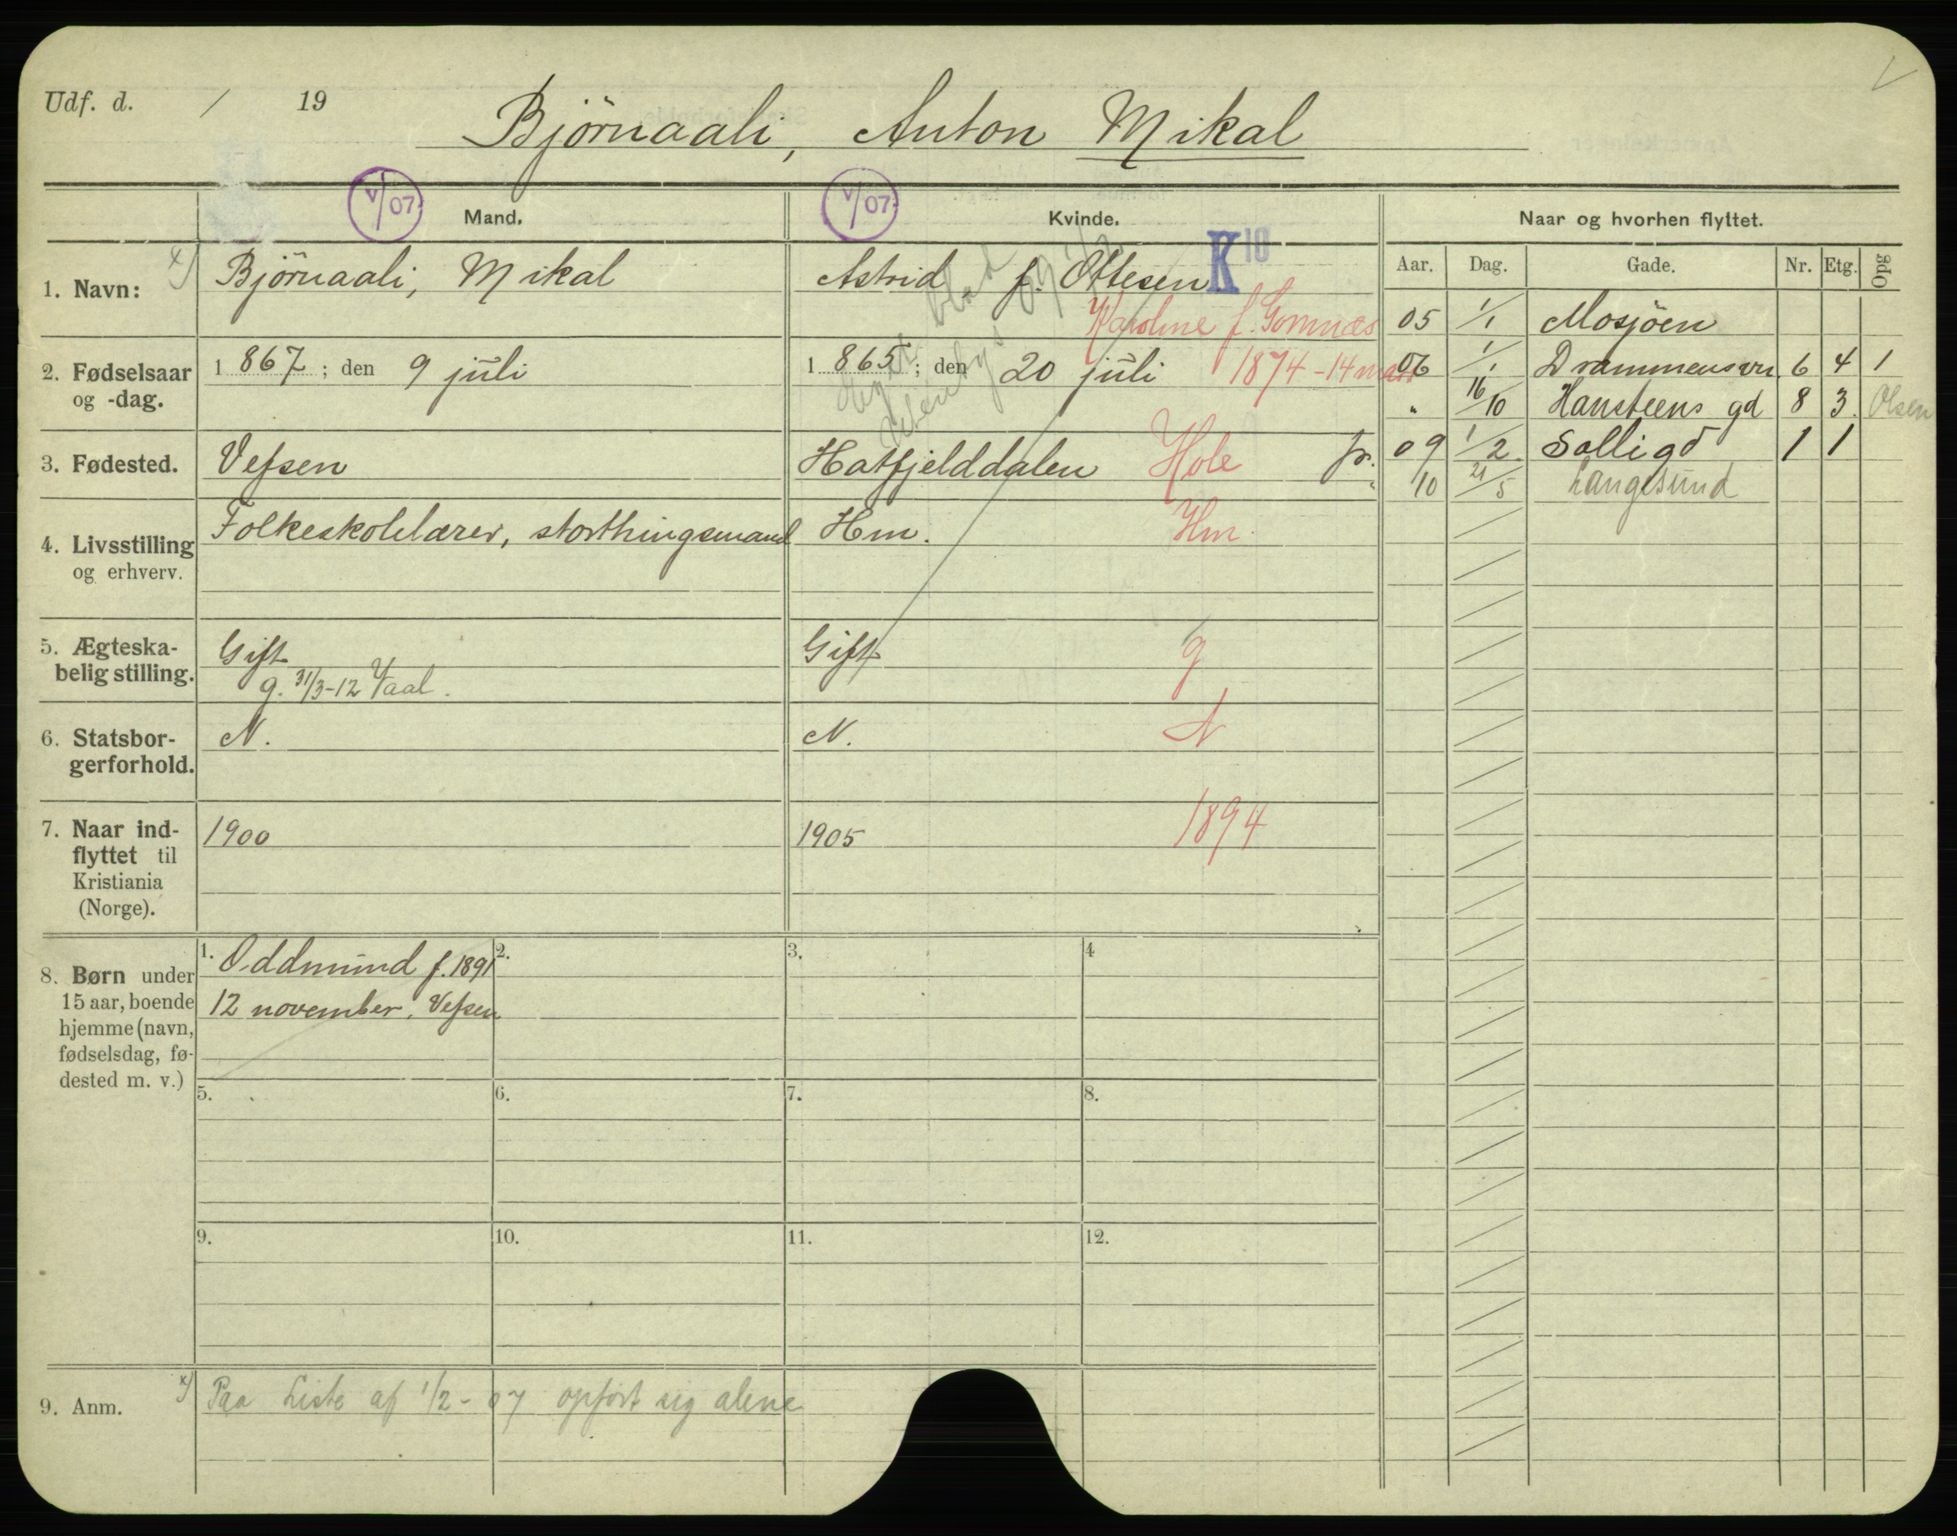 Udf. d. / 19
Bjørnaali, Anton Mikal
V/07
V/07
Mand.
Kvinde.
Naar og hvorhen flyttet.
Aar. Dag. Gade. Nr. Etg. Opg
1. Navn:
x) Bjørnaali, Mikal
Astrid f. Ottesen
K 10
Karoline f. Gomnæs
05 1/1 Mosjöen
2. Fødselsaar
og -dag.
1867; den 9 juli
1865; den 20 juli
1874-14 mars
06 1/1 Drammensvn 6 4 1
" 16/10 Hansteens gd 8 3. Olsen
3. Fødested.
Vefsen
Hatfjelddalen
Hole
fr. 09 1/2 Solligd 1 1
10 21/5 Langesund
4. Livsstilling
og erhverv.
Folkeskolelærer, storthingsmand
Hm.
Hm.
5. Ægteska-
belig stilling.
Gift
g. 31/3-12 Vaal.
Gift
g
6. Statsbor-
gerforhold.
N.
N.
N
7. Naar ind-
flyttet til
Kristiania
(Norge).
1900
1905
1894
8. Børn under
15 aar, boende
hjemme (navn,
fødselsdag, fø-
dested m. v.)
1. Oddmund f. 1891
12 november, Vefsen
2.
3.
4
5.
6.
7.
8.
9.
10.
11.
12.
9. Anm.
x) Paa Liste af 1/2-07 opført sig alene